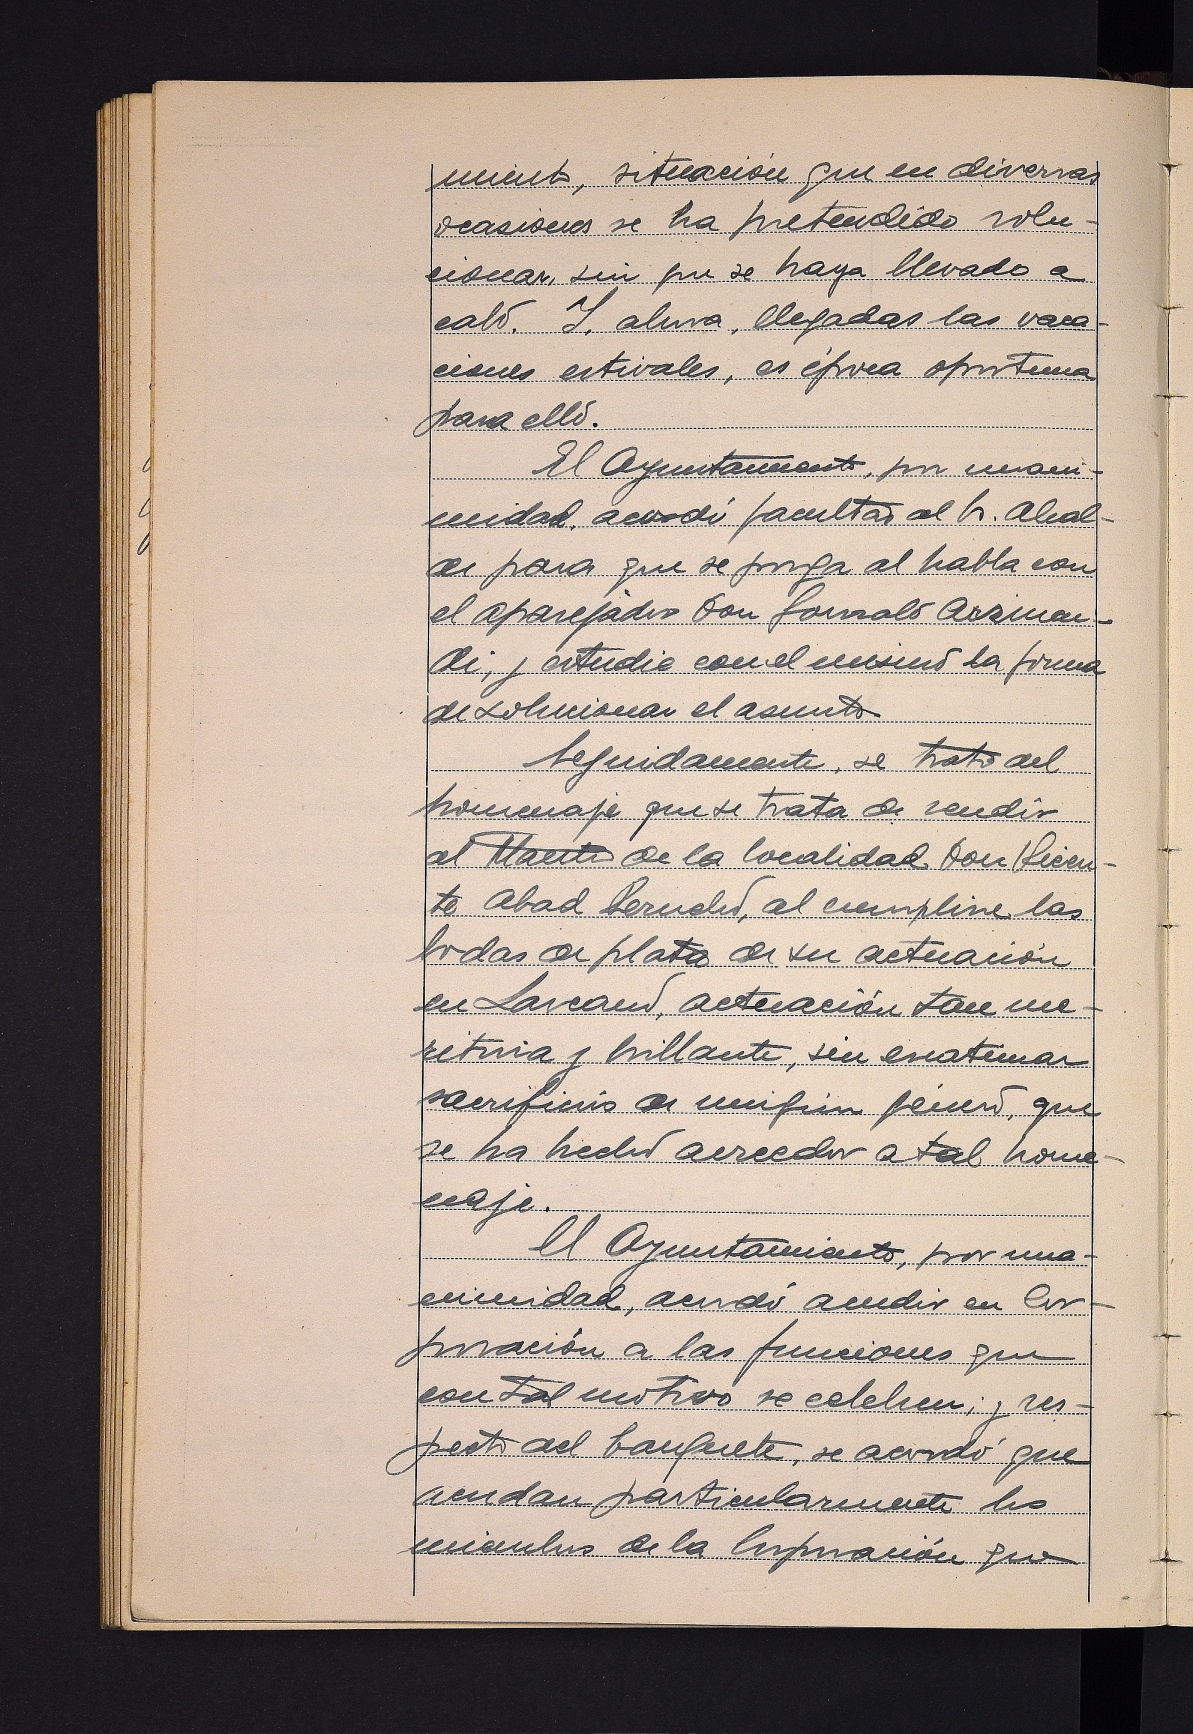 miento, situación que en diversas
ocasiones se ha pretendido solu-
cionar, sin que se haya llevado a
cabo. Y, ahora, llegadas las vaca-
ciones estivales, es época oportuna
para ello.
El Ayuntamiento, por unani-
midad, acordó facultar al Sr. Alcal-
de para que se ponga al habla con
el aparejador Don Gonzalo Arzmen-
di, y estudie con el mismo la forma
de solucionar el asunto.
Seguidamente, se trató del
homenaje que se trata de rendir
al Maestro de la localidad Don Vicen-
te Abad al cumplirse las
bodas de plata de su actuación
en Lazcano, actuación tan me-
ritoria y brillante, sin escatimar
sacrificios de ningún género, que
se ha hecho acreedor a tal home-
naje.
El Ayuntamiento, por una-
nimidad, acordó acudir en Cor-
poración a las funciones que
con tal motivo se celebren; y res-
pecto del banquete, se acordó que
acudan particularmente los
miembros de la Corporación que